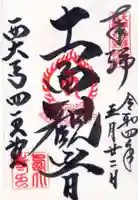 奉拝
令和四年
五月廿二日
十一面観音
西大寺四王堂